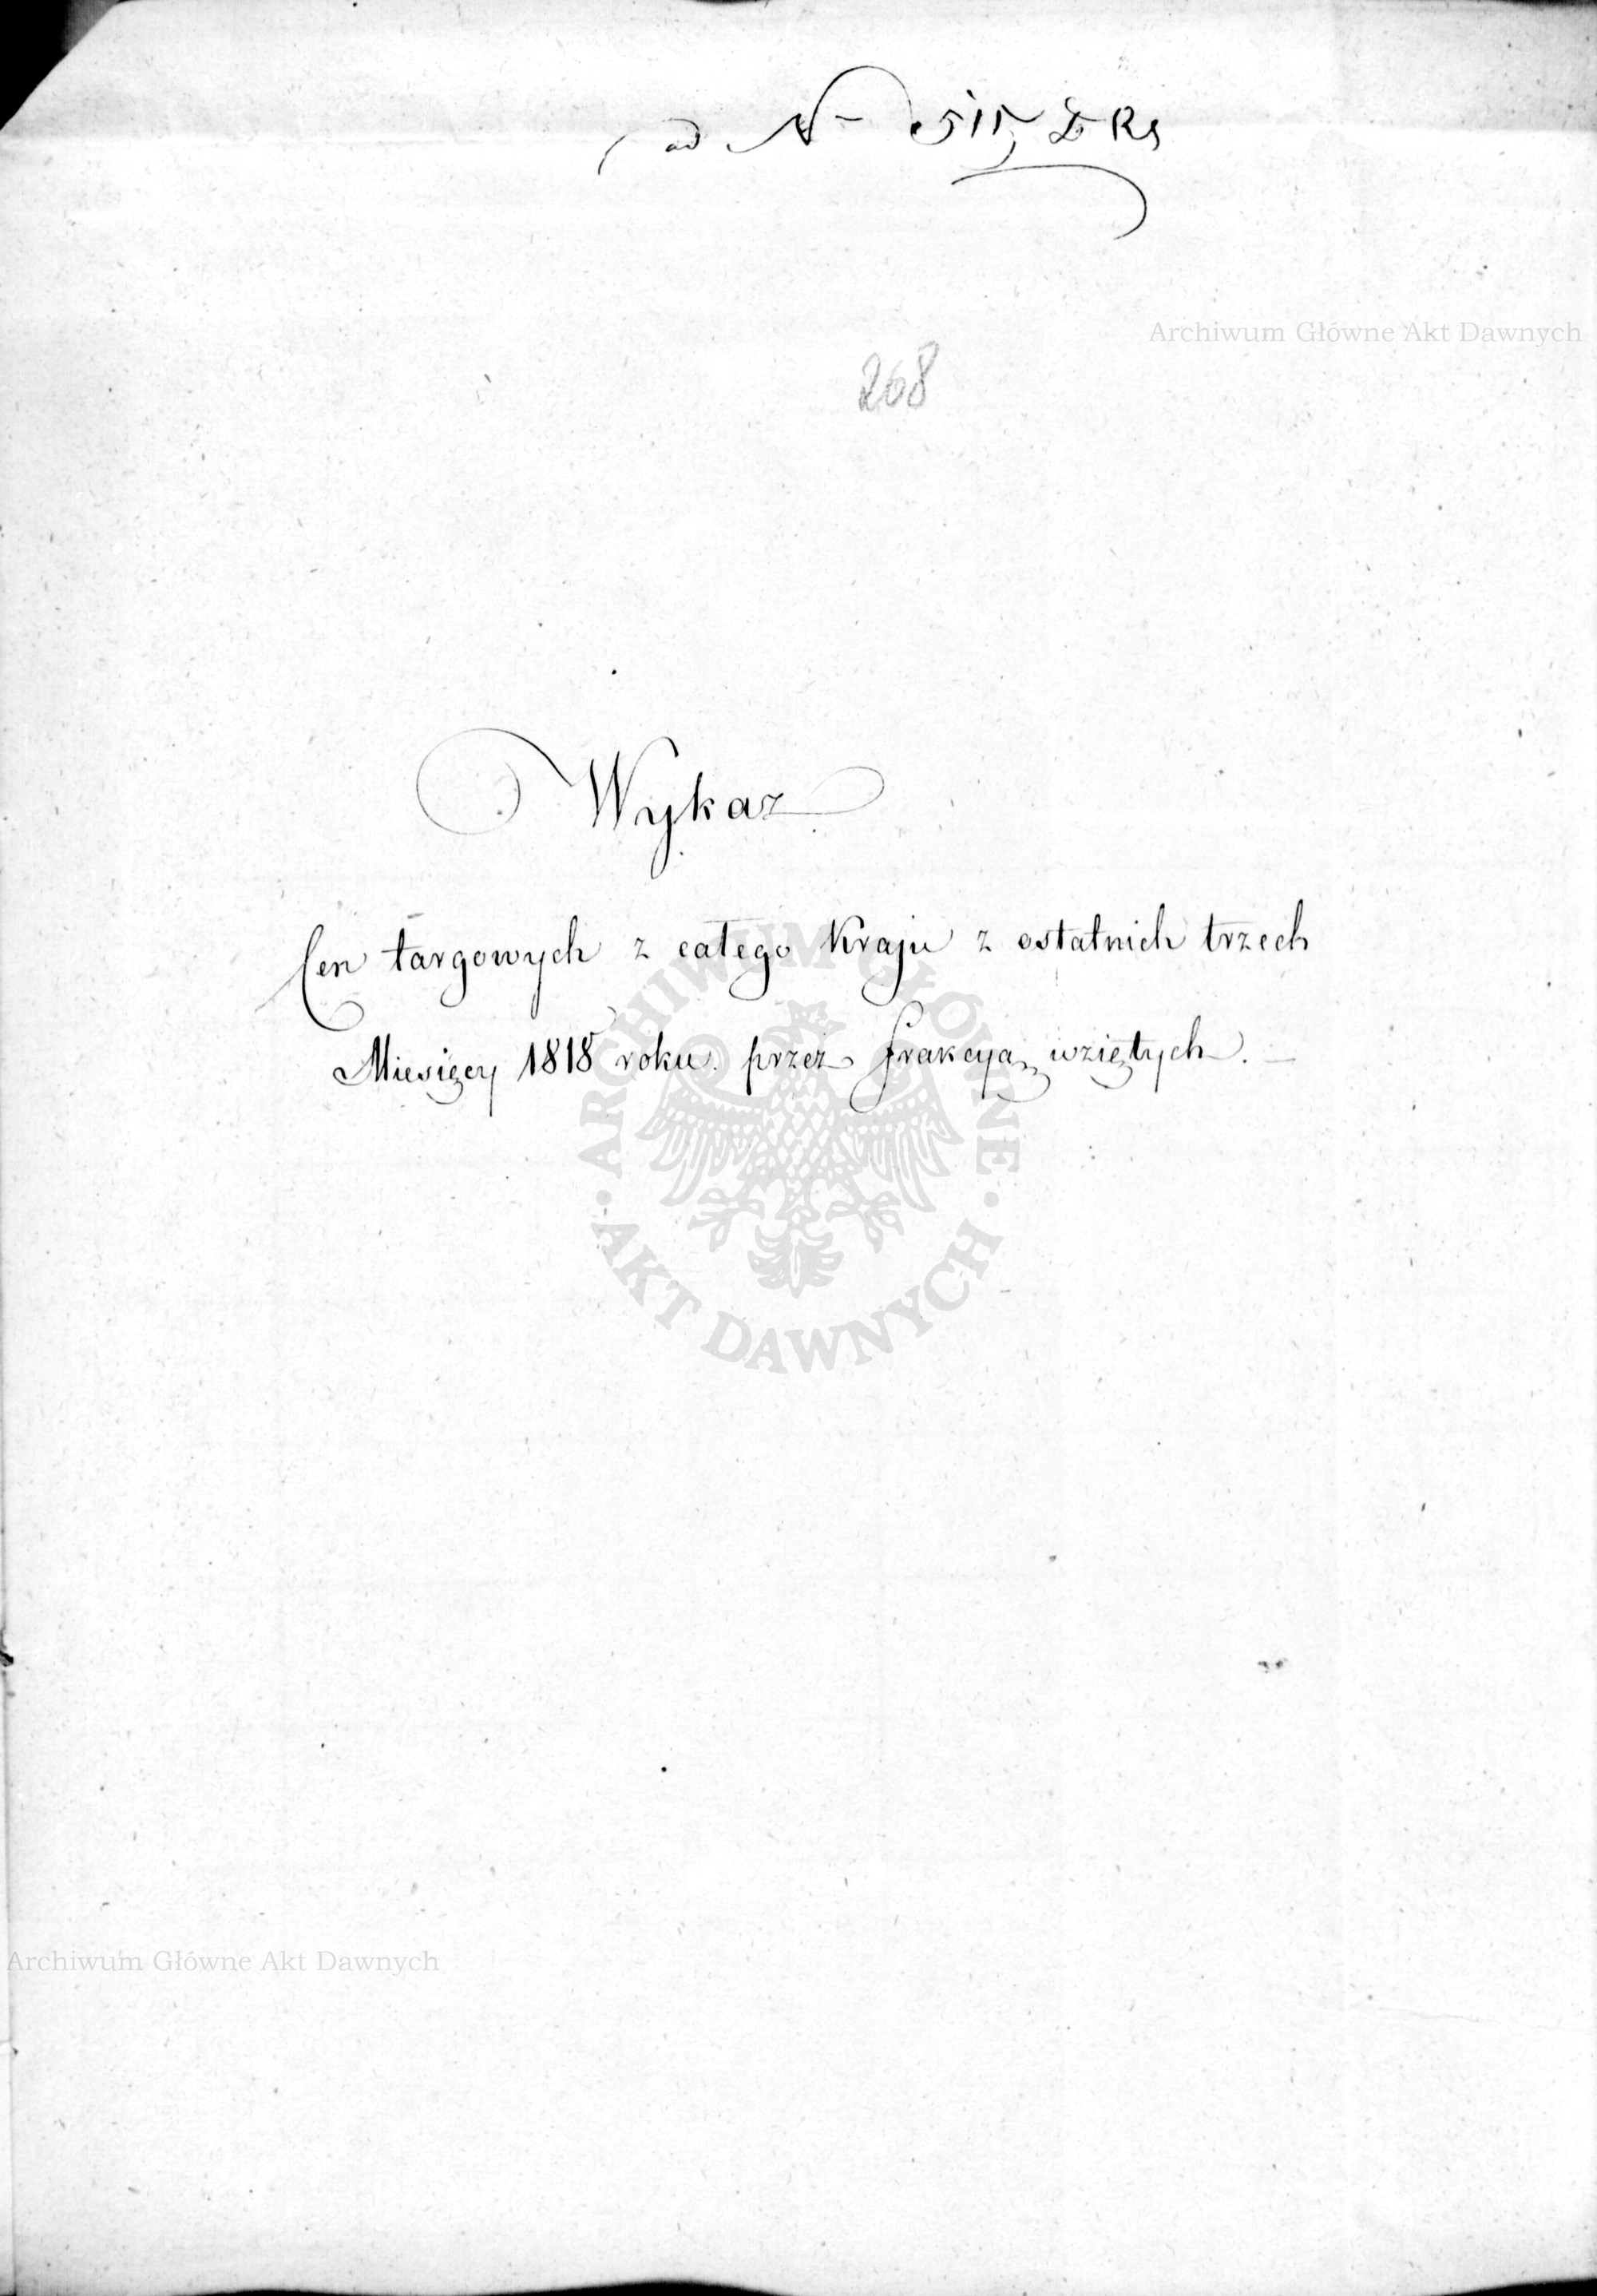 ad N
Archiwum Główne Akt Dawnych
268
Wykaz
Cen targowych z całego Kraju z ostatnich trzech
Miesięcy 1818 roku. przez frakcyą wziętych.
ARCHIWUM GŁÓWNE
AKT DAWNYCH
Archiwum Główne Akt Dawnych